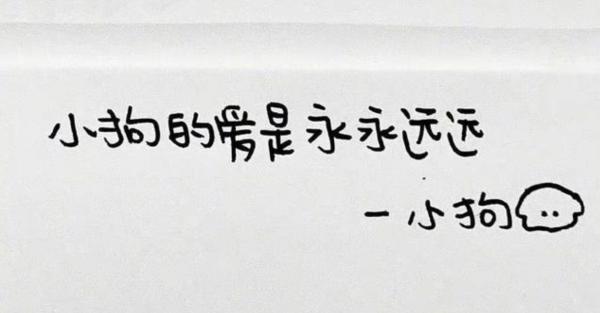 小狗的爱是永永远远
一小狗